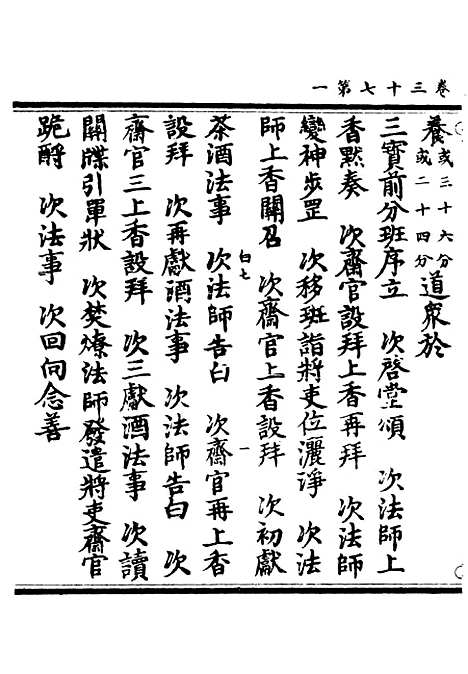 卷三十七第一
養或三十六分或二十四分道衆於
三寳前分班序立　次啓堂頌　次法師上
香默奏　次齋官設拜上香再拜　次法師
變神步罡　次移班詣將吏位灑淨　次法
師上香關召　次齋官上香設拜　次初獻
白七　一
茶酒法事　次法師告白　次齋官再上香
設拜　次再獻酒法事　次法師告白　次
齋官三上香設拜　次三獻酒法事　次讀
關牒引單狀　次焚燎法師發遣將吏齋官
跪酹　次法事　次回向念善